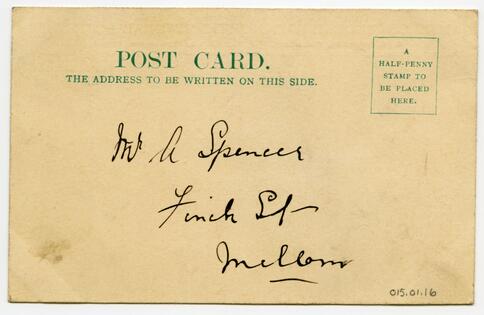 POST CARD.
THE ADDRESS TO BE WRITTEN ON THIS SIDE.
A
HALF-PENNY
STAMP TO
BE PLACED
HERE.
Mr A Spencer
Finch St
Millom
015.01.16